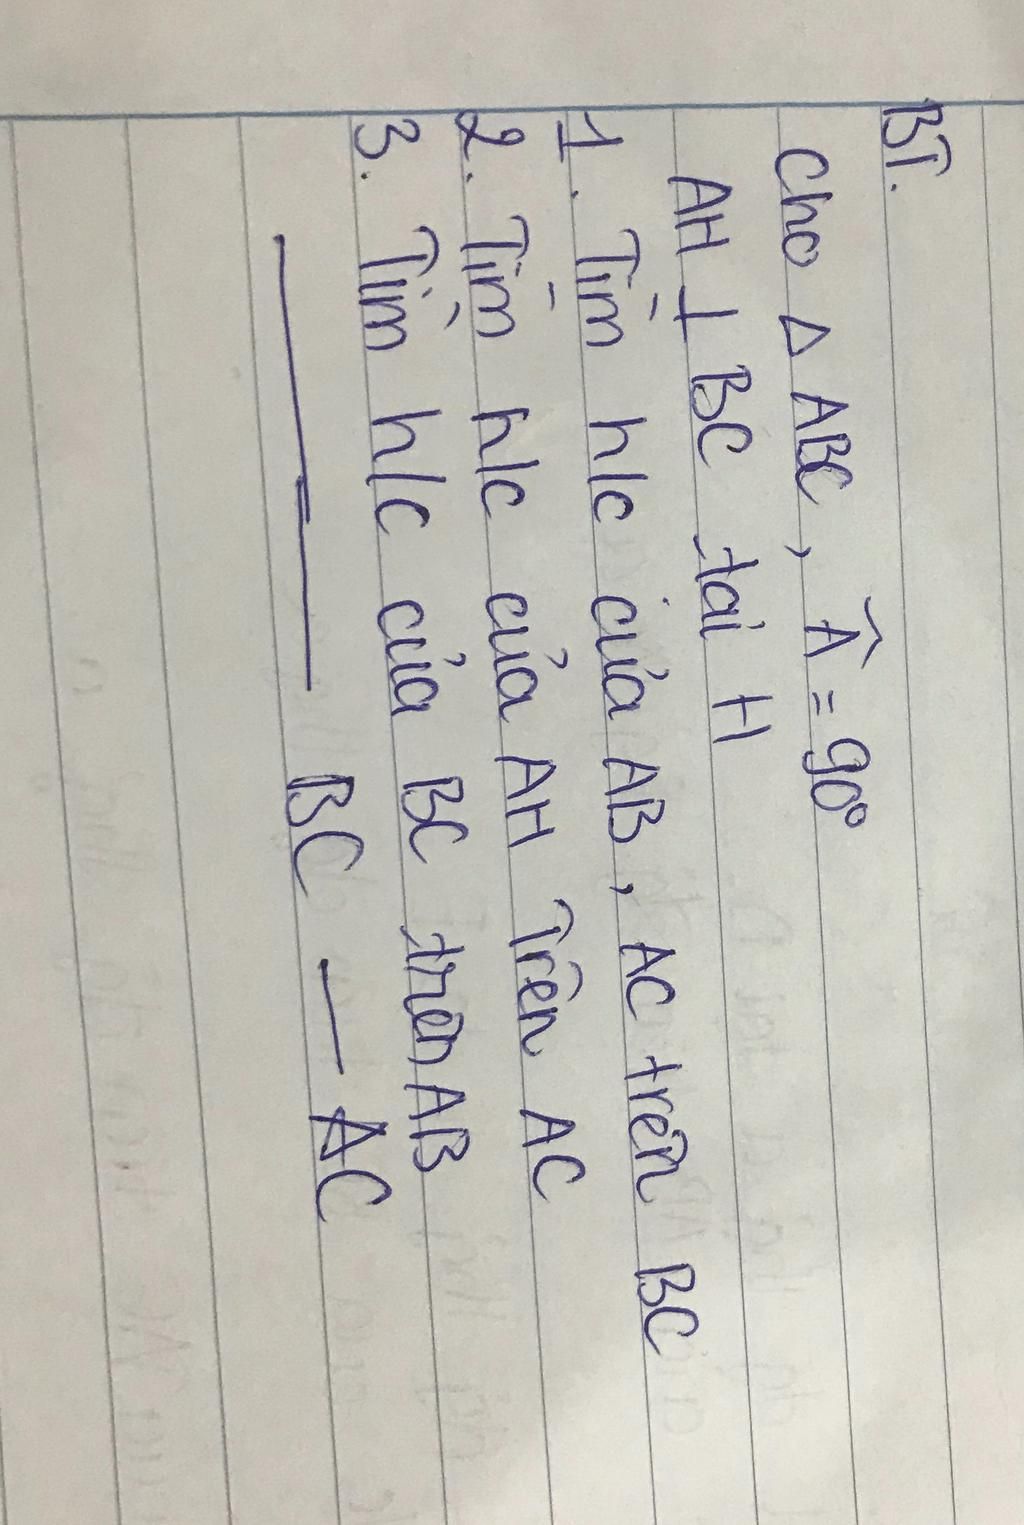 BT.
Cho Δ ABC, Â = 90°
AH ⊥ BC tại H
1. Tìm h/c của AB, AC trên BC
2. Tìm h/c của AH Trên AC
3. Tìm h/c của BC trên AB
——— BC — AC